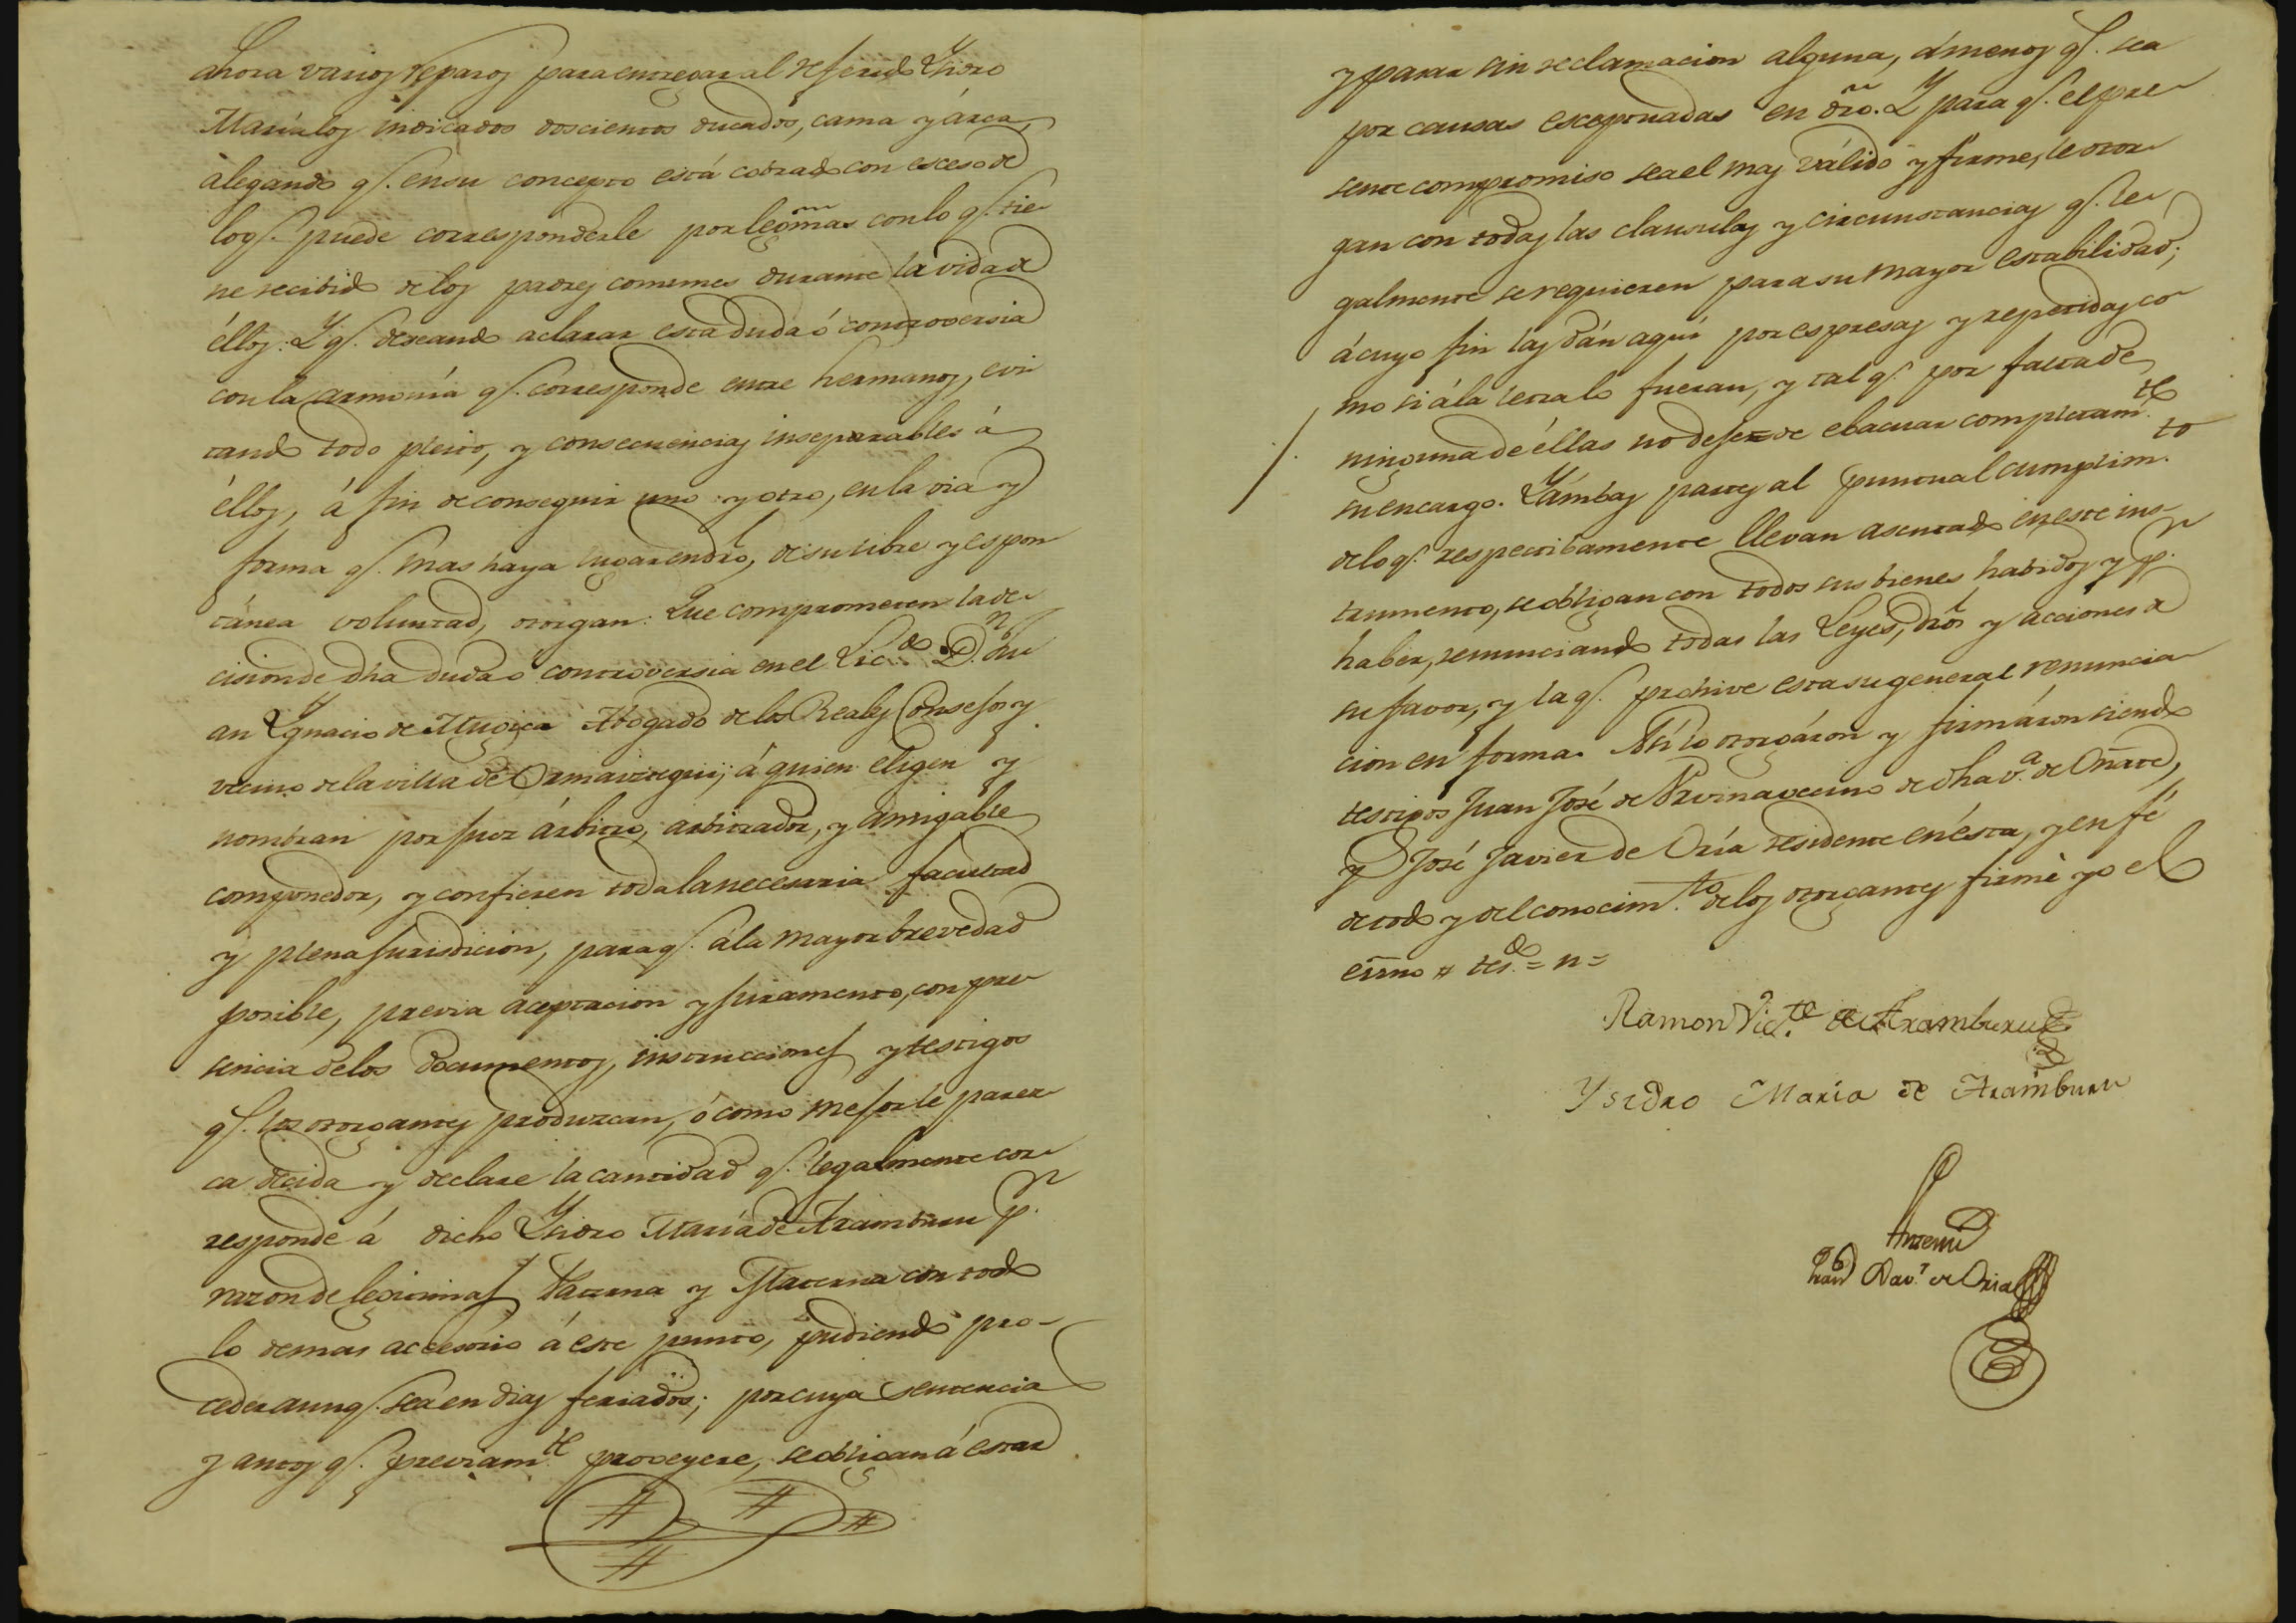 ahora varios reparos para entregar al referido Ysidro
María los indicados doscientos ducados, cama y árca,
alegando q.e en su concepto está cobrado con esceso de
lo q.e puede corresponderle por legmãs con lo q.e tie
ne recibido de los padres comunes durante la vida de
éllos: Y q.e deseando aclarar esta duda ó controversia
con la armonía q.e corresponde entre hermanos, evi
tando todo pleito, y consecuencias inseparables á
éllos, á fin de conseguir uno y otro, en la via y
forma q.e mas haya lugar en dro, de su libre y espon
tánea voluntad, otorgan: Que comprometen la de
cision de dha duda o controversia en el Lic.do D.n Ju
an Ygnacio de Mugica Abogado de los Reales Consejos y
vecino de la villa de Ormaiztegui, á quien eligen y
nombran por juez árbitro, arbitrador, y amigable
componedor, y confieren toda la necesaria facultad
y plena jurisdicion, para q.e á la mayor brevedad
posible, previa aceptacion y juramento, con pre
sencia de los documentos, instrucciones y testigos
q.e los otorgantes produzcan, ó como mejor le parez
ca decida y declare la cantidad q.e legalmente cor
responde á dicho Ysidro María de Aramburu p.r
razon de legitimas Paterna y Materna con todo
lo demas accesorio á este punto, pudiendo pro-
ceder aunq.e sea en dias feriados; por cuya sentencia
y autos q.e previam.te proveyere, se obligan á estar
y pasar sin reclamacion alguna, ámenos q.e sea
por causas esceptuadas en dro. Y para q.e el pre
sente compromiso sea el mas válido y firme, le otor
gan con todas las clausulas y circunstancias q.e le
galmente se requieren para su mayor estabilidad;
á cuyo fin las dán aquí por espresas y repetidas co
mo si á la letra lo fueran, y tal q.e por falta de
ninguna de éllas no deje de ebacuar completam.te
su encargo. Y ámbas partes al puntual cumplim.to
de lo q.e respectibamente llevan asentado en este ins-
trumento, se obligan con todos sus bienes habidos y p.r
haber, renunciando todas las Leyes, dros y acciones de
su favor, y la q.e prohive esta su general renuncia
cion en forma. Así lo otorgáron y firmáron siendo
testigos Juan José de Urvina vecino de dha v.a de Oñate,
y José Javier de Oría residente en ésta, y en fé
de todo y del conocim.to de los otorgantes firmé yo el
essno # tes.do = n =
Ramon Vic.te de Aramburu
Ysidro Maria de Aramburu
Antemi
Xav.r de Oria